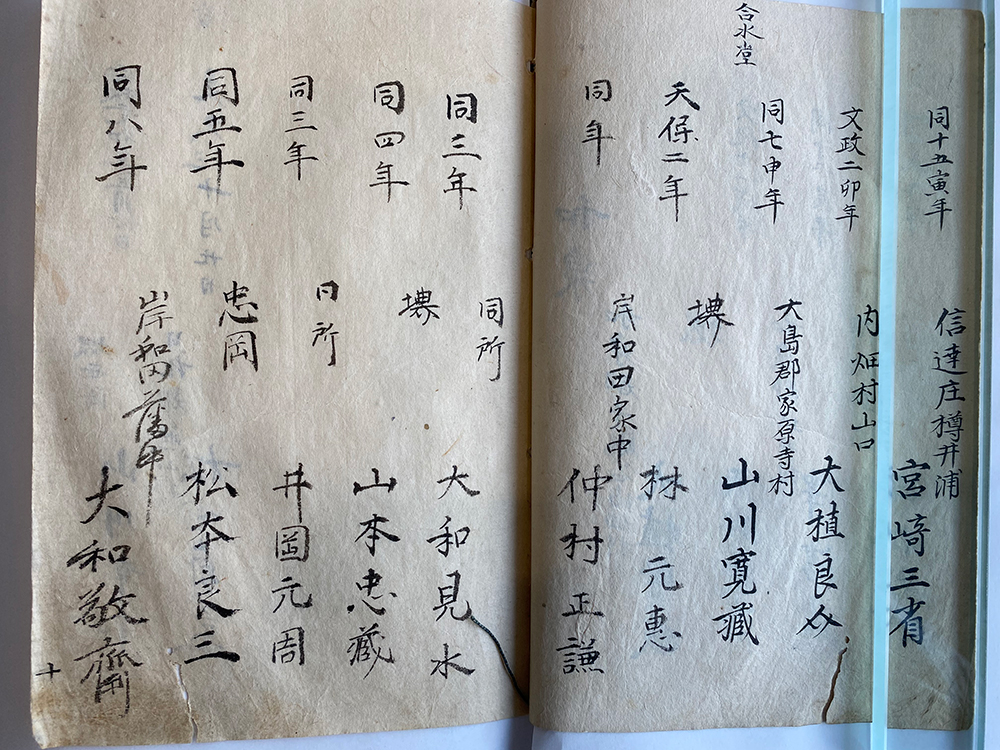 同十五寅年
信達庄樽井浦
宮崎三省
文政二卯年
内畑村山口
大植良
同七申年
大島郡家原寺村
山川寛藏
合水堂
天保二年
堺
林元惠
同年
岸和田家中
仲村正謙
同三年
同所
大和見水
同四年
堺
山本忠藏
同三年
同所
井岡元周
同五年
忠岡
松本良三
同八年
岸和田藩中
大和敬齋
十